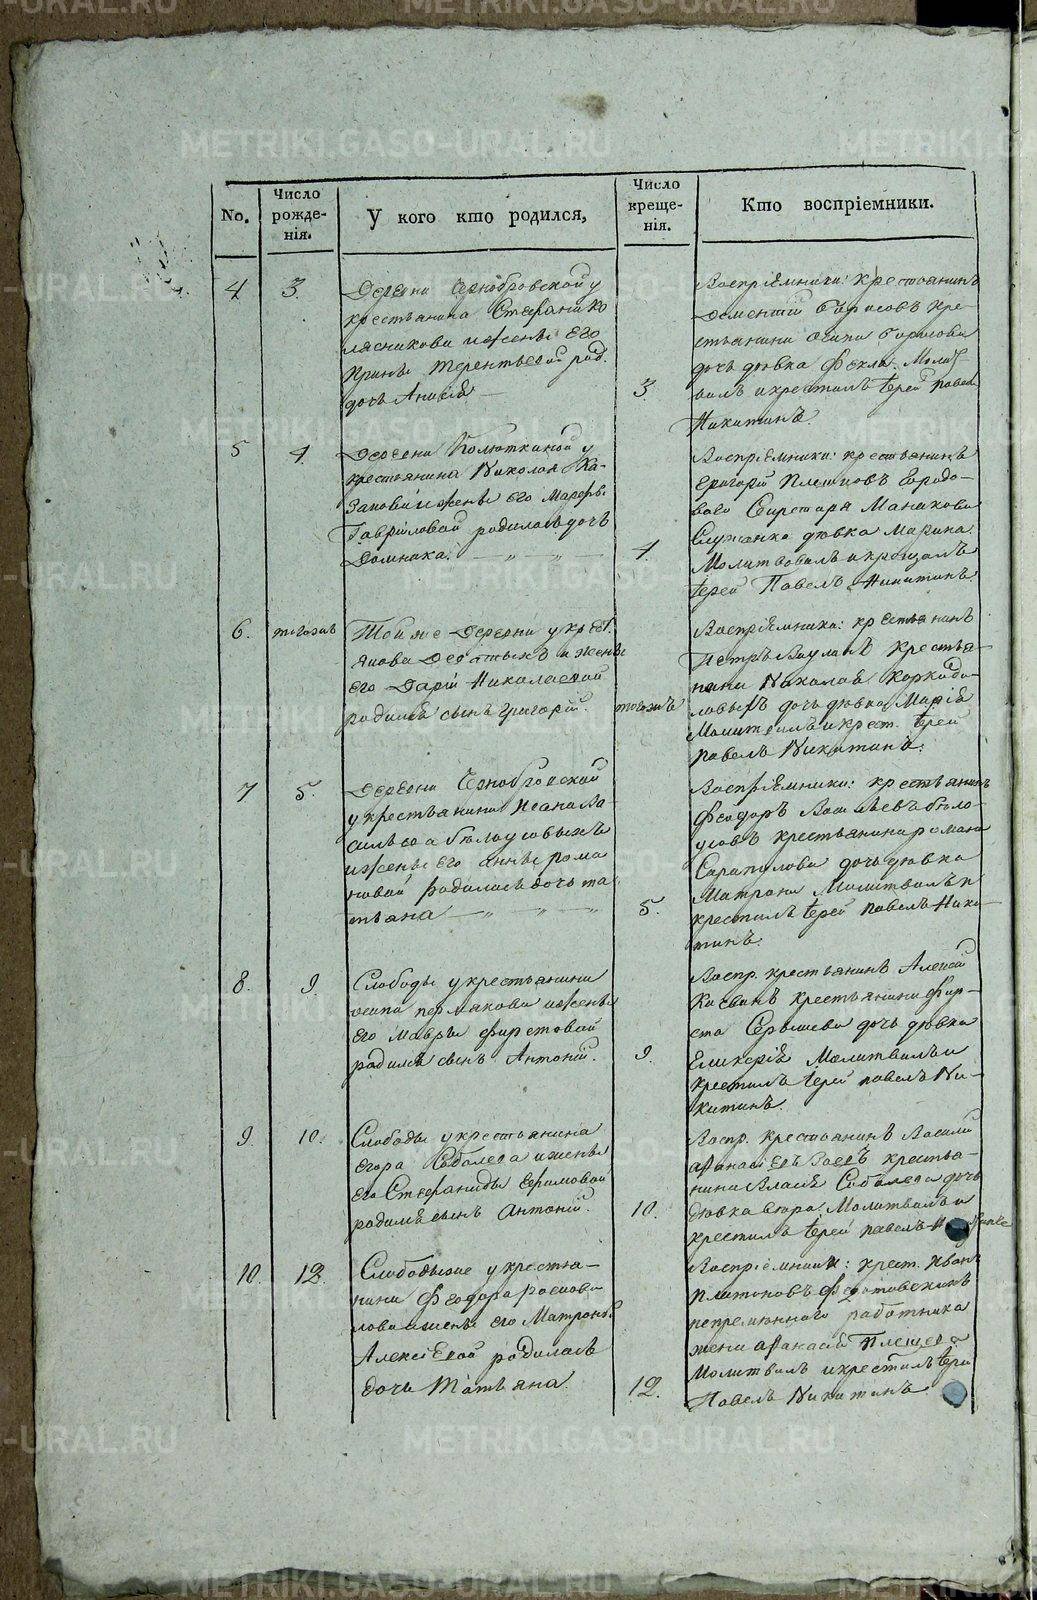 No.
Число
рожде-
нія.
У кого кто родился,
Число
креще-
нія.
Кто воспріемники.
4
3.
Деревни Чернобровской у
крестьянина Стефана Ко
лясникова и жены его
Ирины Терентьевой род.
дочь Анисія —
3
Воспріемники: крестьянинъ
Дементій Борисовъ кре-
стьянина Осипа Борисова
дочь дѣвка Фекла. Молит
вилъ и крестилъ Іерей Павелъ
Никитинъ.
5
4.
Деревни Колюткиной у
крестьянина Николая Ка-
закова и жены его Марѳы
Гавриловой родилась дочь
Домника. — „ — „ —
4.
Воспріемники: крестьянинъ
Григорій Плешковъ Городо-
ваго Секретаря Маникова
Служанка дѣвка Марина.
Молитвовалъ и крещалъ
Іерей Павелъ Никитинъ.
6.
тогожъ
Той же Деревни у крест.
Якова и жены
его Дарьи Николаевой
родился сынъ Григорій.
тогожъ
Воспріемники: крестьянинъ
Петръ крестья-
нина Николая Коркоди-
новыхъ дочь дѣвка Марія
Молитвилъ и крест. Іерей
Павелъ Никитинъ.
7
5.
Деревни Чернобровской
у крестьянина Ивана Ва-
сильева Бѣлоусовыхъ
и жены его Анны Рома
новой родилась дочь Та
тьяна — „ — „ — „
5.
Воспріемники: крестьянинъ
Феодоръ Васильевъ Бѣло-
усовъ крестьянина Романа
Сарапулова дочь дѣвка
Матрона Молитвилъ и
крестилъ Іерей Павелъ Ники-
тинъ.
8.
9.
Слободы у крестьянина
Осипа Пермякова и жены
его Мавры Фирстовой
родился сынъ Антоній.
9.
Воспр. крестьянинъ Алексей
крестьянина Фир-
ста дочь дѣвка
Гликерія Молитвилъ и
крестилъ Іерей Павелъ Ни-
китинъ.
9.
10.
Слободы у крестьянина
Егора Соболева и жены
его Стефаниды Ефимовой
родился сынъ Антоній.
10.
Воспр. крестьянинъ Василій
крестья-
нина Власа Соболева дочь
дѣвка Молитвилъ и
крестилъ Іерей Павелъ
10.
12.
Слободы же у крестья-
нина Феодора
и жены его Матроны
Алексіевой родилась
дочь Татьяна.
12.
Воспріемники: крест. Иванъ
Платоновъ Федотовскихъ
непремѣннаго работника
жена
Молитвилъ и крестилъ Іерей
Павелъ Никитинъ
METRIKI.GASO-URAL.RU